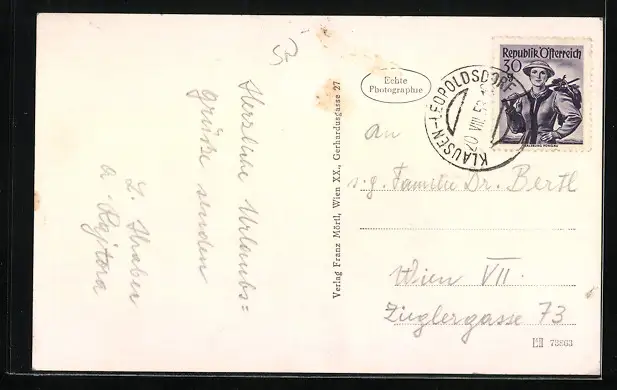 Herzliche Urlaubs=
grüße senden
L. Straber
u. Rajtora
Verlag Franz Mörtl, Wien XX., Gerhardusgasse 27
Echte
Photographie
Republik Österreich
30
SALZBURG PONGAU
KLAUSEN-LEOPOLDSDORF
An
s.g. Familie Dr. Bertl
Wien VII.
Zieglergasse 73
73863